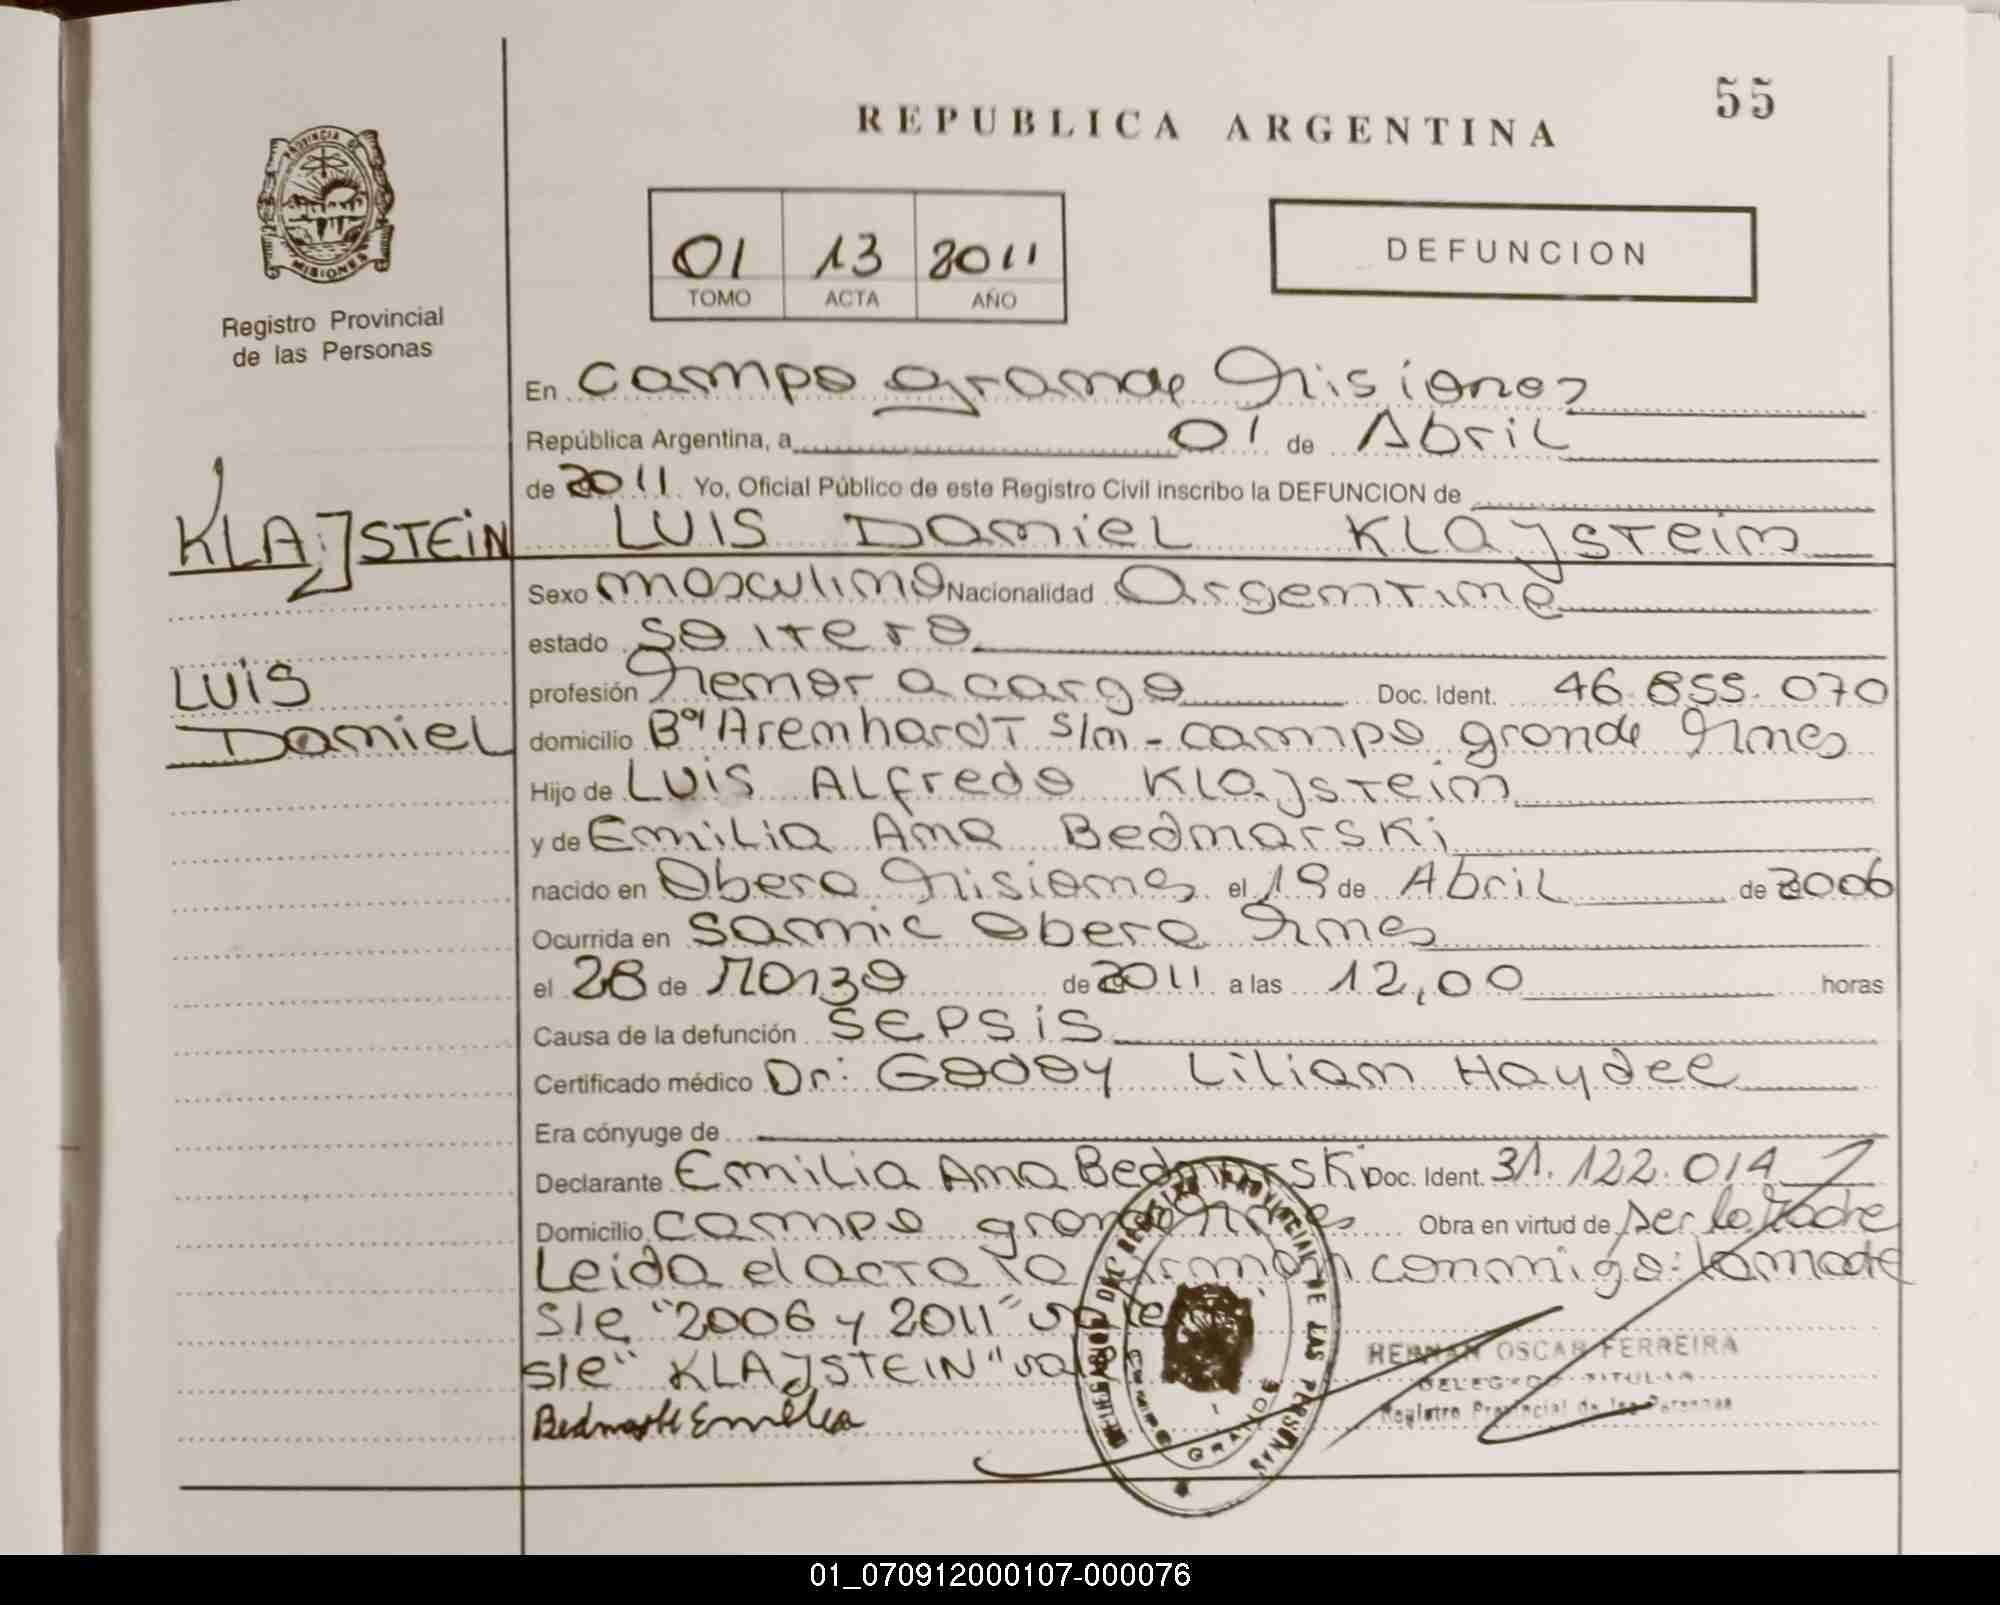 55
REPUBLICA ARGENTINA
PROVINCIA DE
MISIONES
Registro Provincial
de las Personas
01 13 2011
TOMO ACTA AÑO
DEFUNCION
En Campo grande Misiones
República Argentina, a 01 de Abril
de 2011 Yo, Oficial Público de este Registro Civil inscribo la DEFUNCION de
KLAJSTEIN LUIS DaniEL KLAJSTEin
Sexo masculino Nacionalidad Argentina
estado soltero
LUIS
DaniEL
profesión Menor a cargo Doc. Ident. 46.855.070
domicilio B° Arenhardt s/n - campo grande Mnes
Hijo de LUIS ALfredo KLAJSTEin
y de EmiLia Ana BednarsKi
nacido en Obera Misiones el 19 de Abril de 2006
Ocurrida en Samic Obera Mnes
el 28 de Marzo de 2011 a las 12,00 horas
Causa de la defunción SEPSIS
Certificado médico Dr: Godoy Lilian Haydee
Era cónyuge de
Declarante EmiLia Ana BednarsKi Doc. Ident. 31.122.014
Domicilio Campo grande Mnes Obra en virtud de ser la Madre
Leida el acta la firman conmigo: la madre
s/e "2006 y 2011" vale
s/e "KLAJSTEIN" vale
Bednarski Emilia
HERNAN OSCAR FERREIRA
DELEGADO TITULAR
Registro Provincial de las Personas
REGISTRO PROVINCIAL DE LAS PERSONAS
GRANDE
01_070912000107-000076